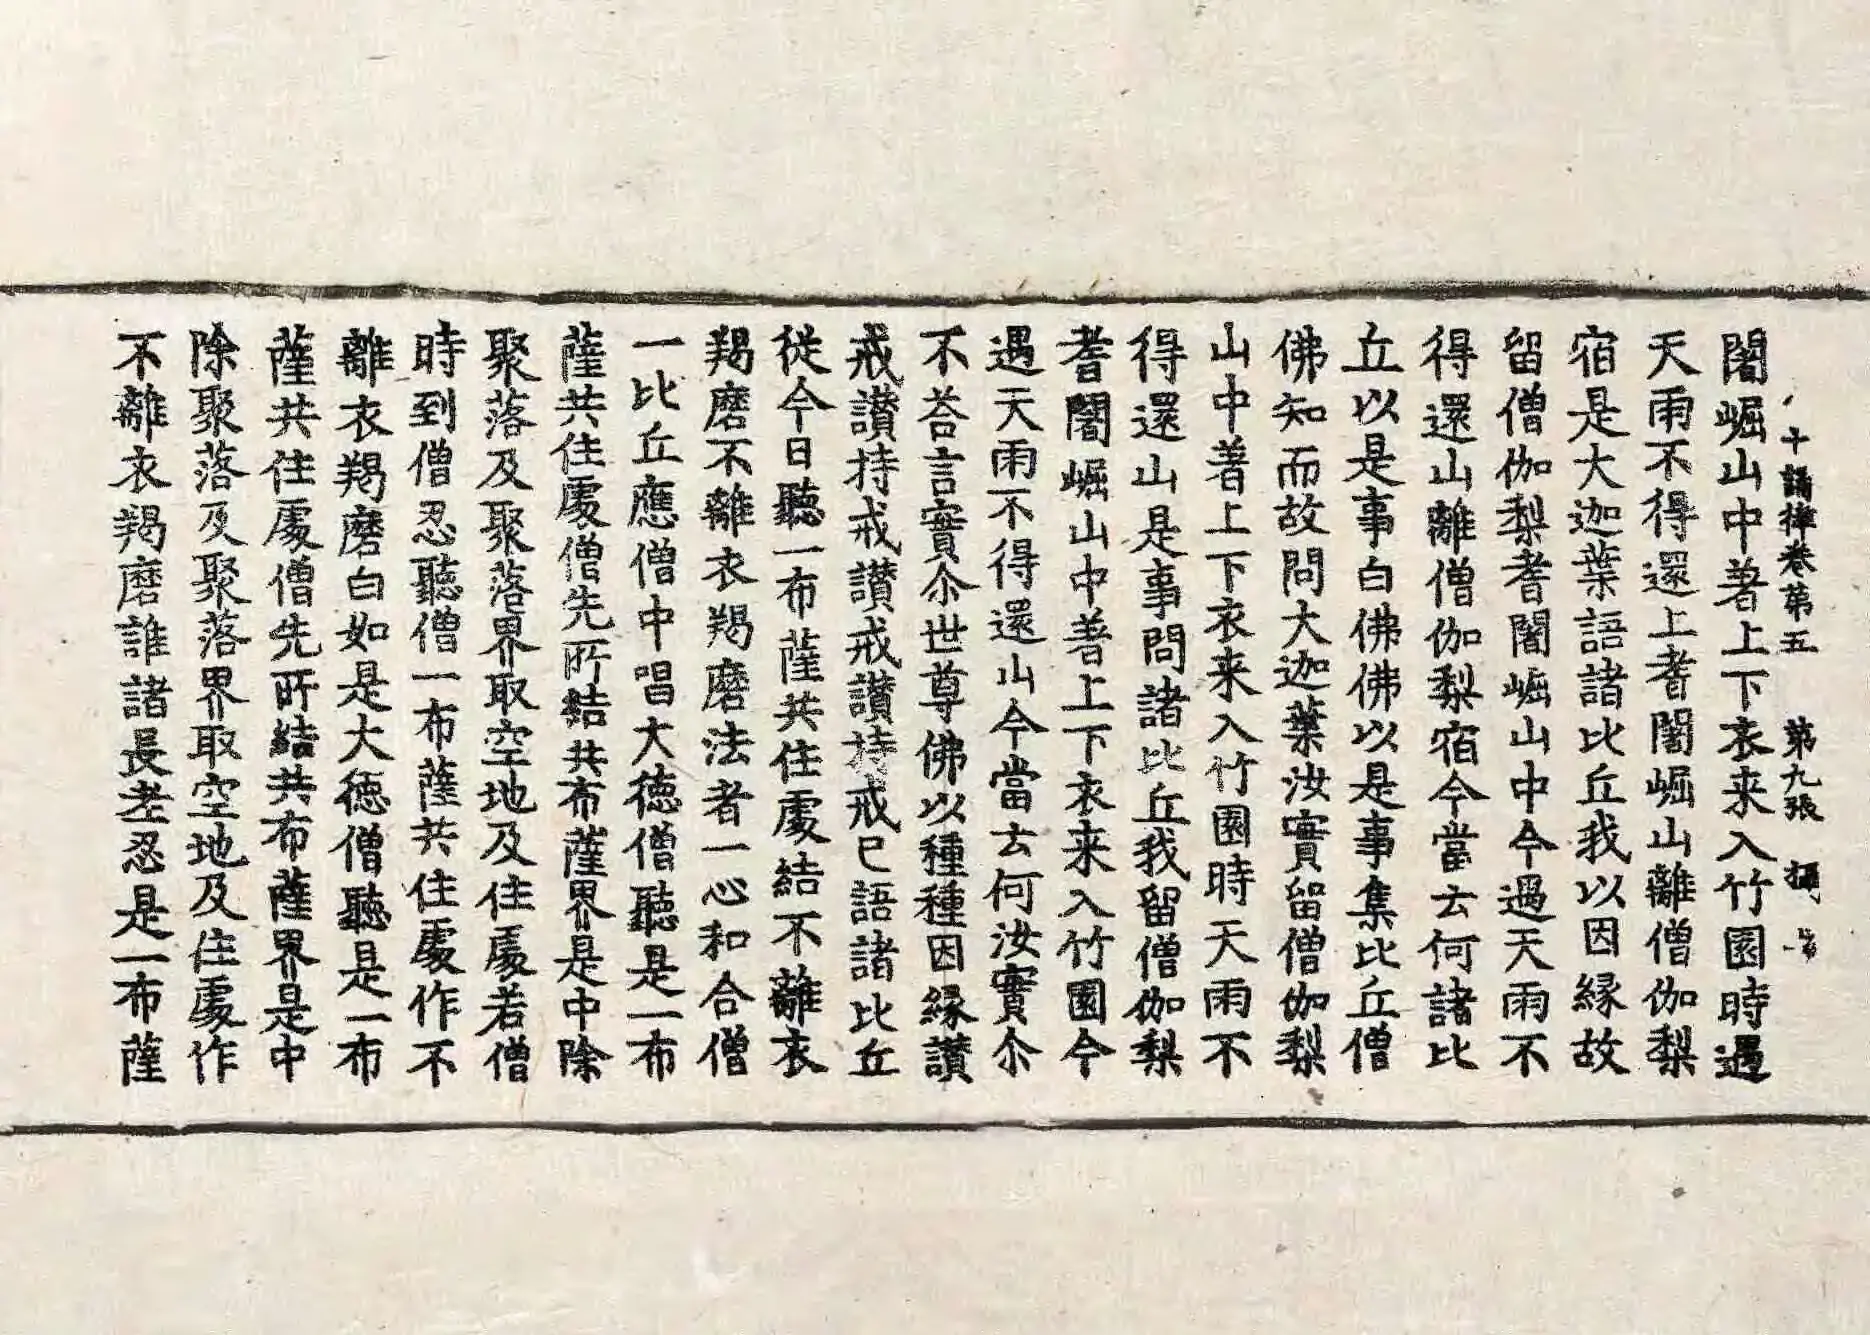 十誦律卷第五 第九張 攝
闍崛山中著上下衣来入竹園時遇
天雨不得還上耆闍崛山離僧伽梨
宿是大迦葉語諸比丘我以因縁故
留僧伽梨耆闍崛山中今遇天雨不
得還山離僧伽梨宿今當去何諸比
丘以是事白佛佛以是事集比丘僧
佛知而故問大迦葉汝實留僧伽梨
山中著上下衣来入竹園時天雨不
得還山是事問諸比丘我留僧伽梨
耆闍崛山中著上下衣来入竹園今
遇天雨不得還山今當去何汝實尒
不荅言實尒世尊佛以種種因縁讃
戒讃持戒讃戒讃持戒已語諸比丘
從今日聽一布薩共住處結不離衣
羯磨不離衣羯磨法者一心和合僧
一比丘應僧中唱大徳僧聽是一布
薩共住處僧先所結共布薩界是中除
聚落及聚落界取空地及住處若僧
時到僧忍聽僧一布薩共住處作不
離衣羯磨白如是大徳僧聽是一布
薩共住處僧先所結共布薩界是中
除聚落及聚落界取空地及住處作
不離衣羯磨誰諸長老忍是一布薩